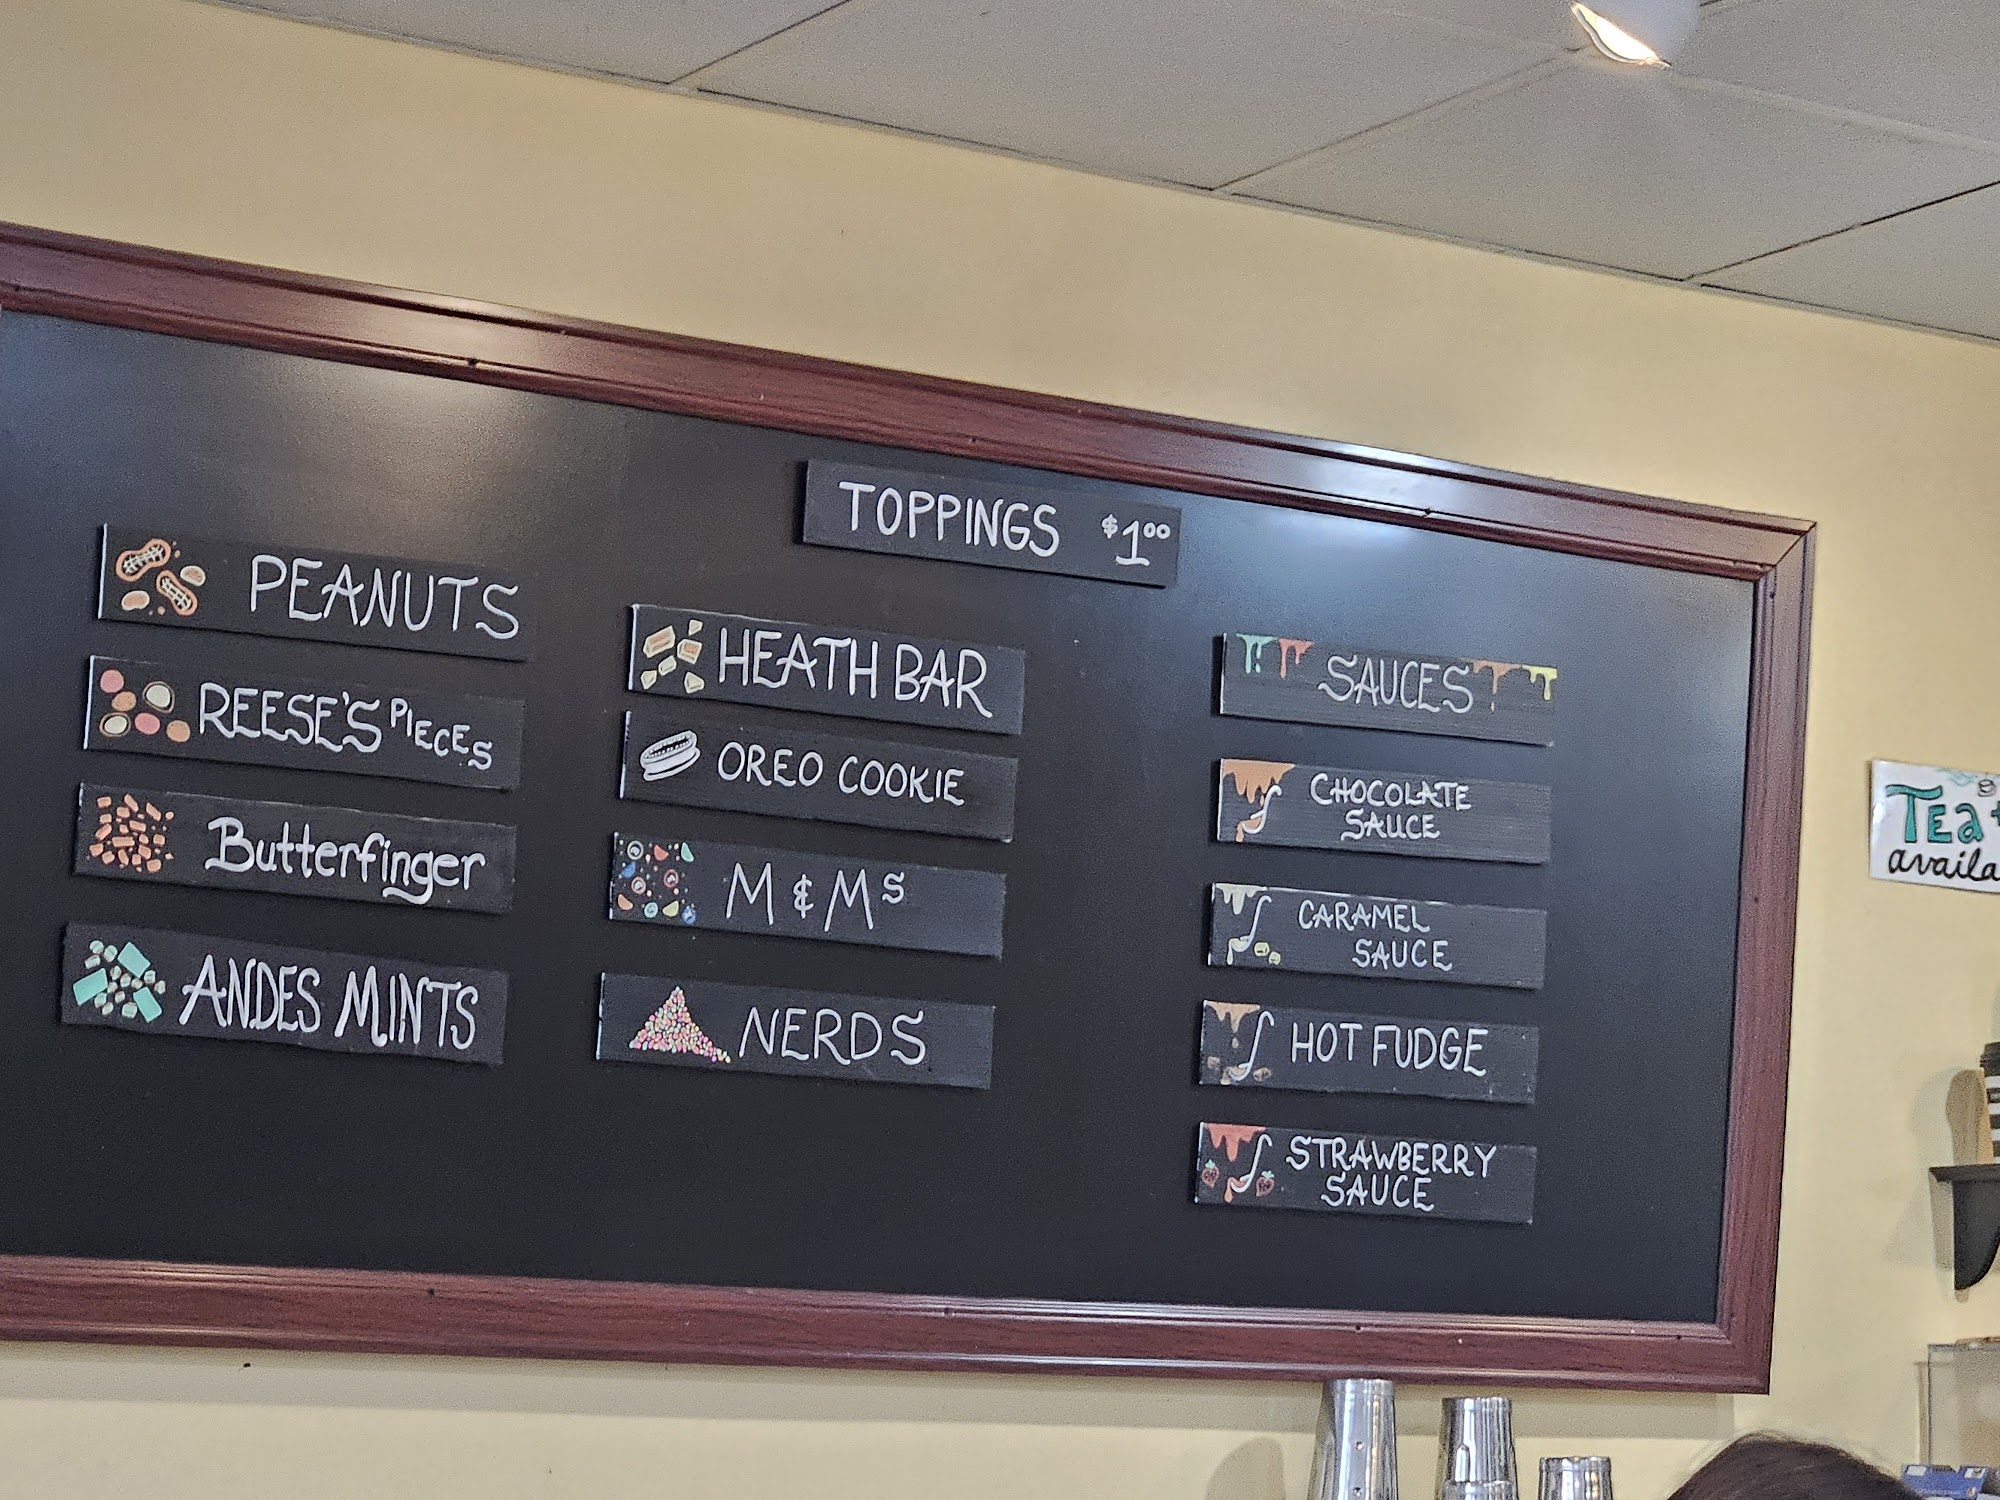 TOPPINGS $1.00
PEANUTS
REESE'S PIECES
Butterfinger
ANDES MINTS
HEATH BAR
OREO COOKIE
M & Ms
NERDS
SAUCES
CHOCOLATE
SAUCE
CARAMEL
SAUCE
HOT FUDGE
STRAWBERRY
SAUCE
TEa